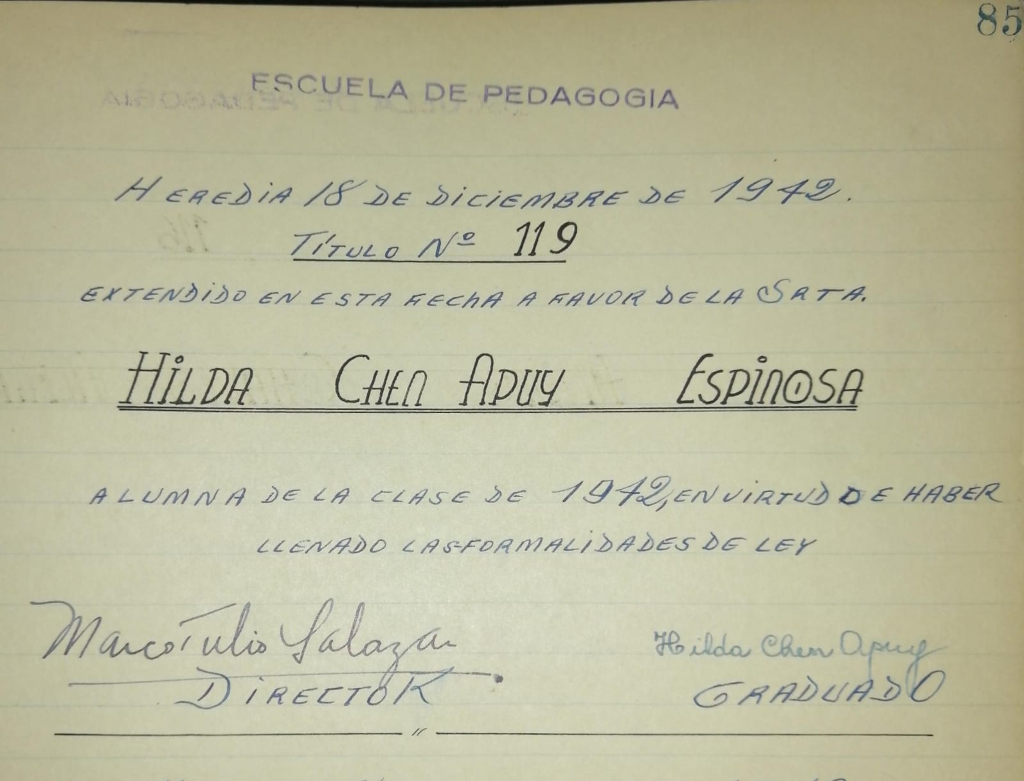 85
ESCUELA DE PEDAGOGIA
HEREDIA 18 DE DICIEMBRE DE 1942.
TÍTULO Nº 119
EXTENDIDO EN ESTA FECHA A FAVOR DE LA SRTA.
HILDA CHEN APUY ESPINOSA
ALUMNA DE LA CLASE DE 1942, EN VIRTUD DE HABER
LLENADO LAS FORMALIDADES DE LEY
Marco Tulio Salazar Hilda Chen Apuy
DIRECTOR GRADUADO